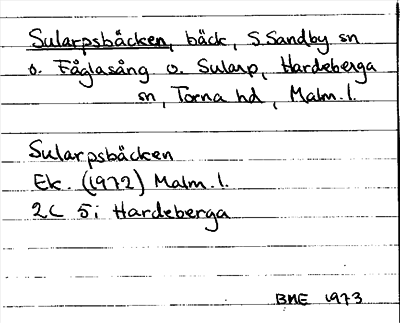 Sularpsbäcken, bäck, S. Sandby sn
o. Fåglasång o. Sularp, Hardeberga
sn, Torna hd, Malm. l.
Sularpsbäcken
Ek. (1972) Malm. l.
2C 5i Hardeberga
BME 1973